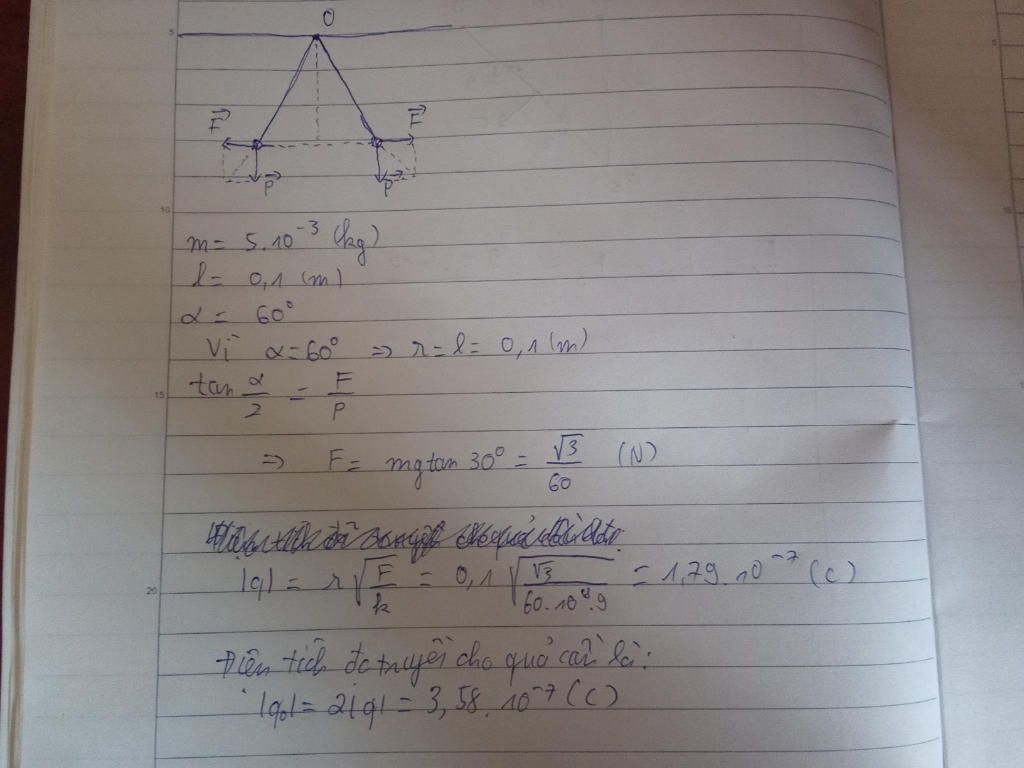 O
F F
P P
m = 5.10⁻³ (kg)
l = 0,1 (m)
α = 60°
Vì α = 60° ⇒ r = l = 0,1 (m)
tan α/2 = F/P
⇒ F = mg tan 30° = √3/60 (N)
|q| = r√(F/k) = 0,1√(√3/60.10⁹.9) = 1,79.10⁻⁷ (C)
Điện tích đã truyền cho quả cầu là:
|q₀| = 2|q| = 3,58.10⁻⁷ (C)